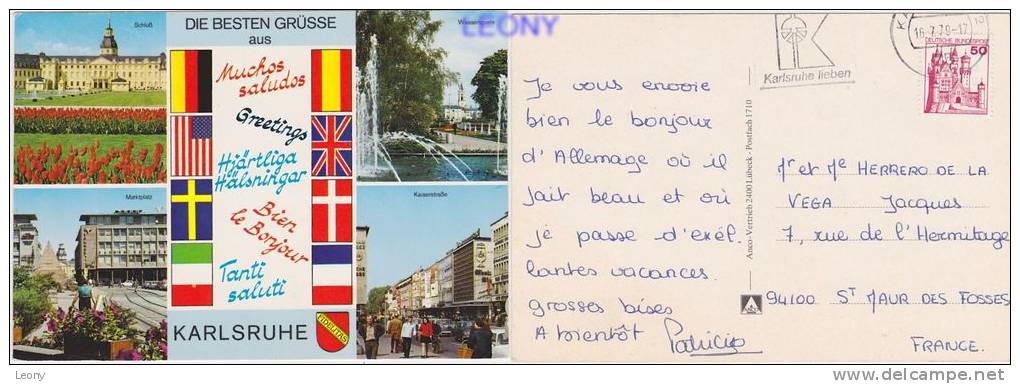 LEONY
DIE BESTEN GRÜSSE
aus
Schloß
Wasserspiele
Muchos
saludos
Greetings
Hjärtliga
Hälsningar
Bien
le Bonjour
Tanti
saluti
Marktplatz
Kaiserstraße
KARLSRUHE
FIDELITAS
Karlsruhe lieben
16.7.79-17
DEUTSCHE BUNDESPOST
50
Je vous envoie
bien le bonjour
d'Allemage où il
fait beau et où
je passe d'exél.
lantes vacances.
grosses bises
A bientôt Patricia
Anco-Vertrieb 2400 Lübeck - Postfach 1710
Mr et Me HERRERO DE LA
VEGA Jacques
7, rue de l'Hermitage
94100 ST MAUR DES FOSSES
FRANCE.
Leony
delcampe.net